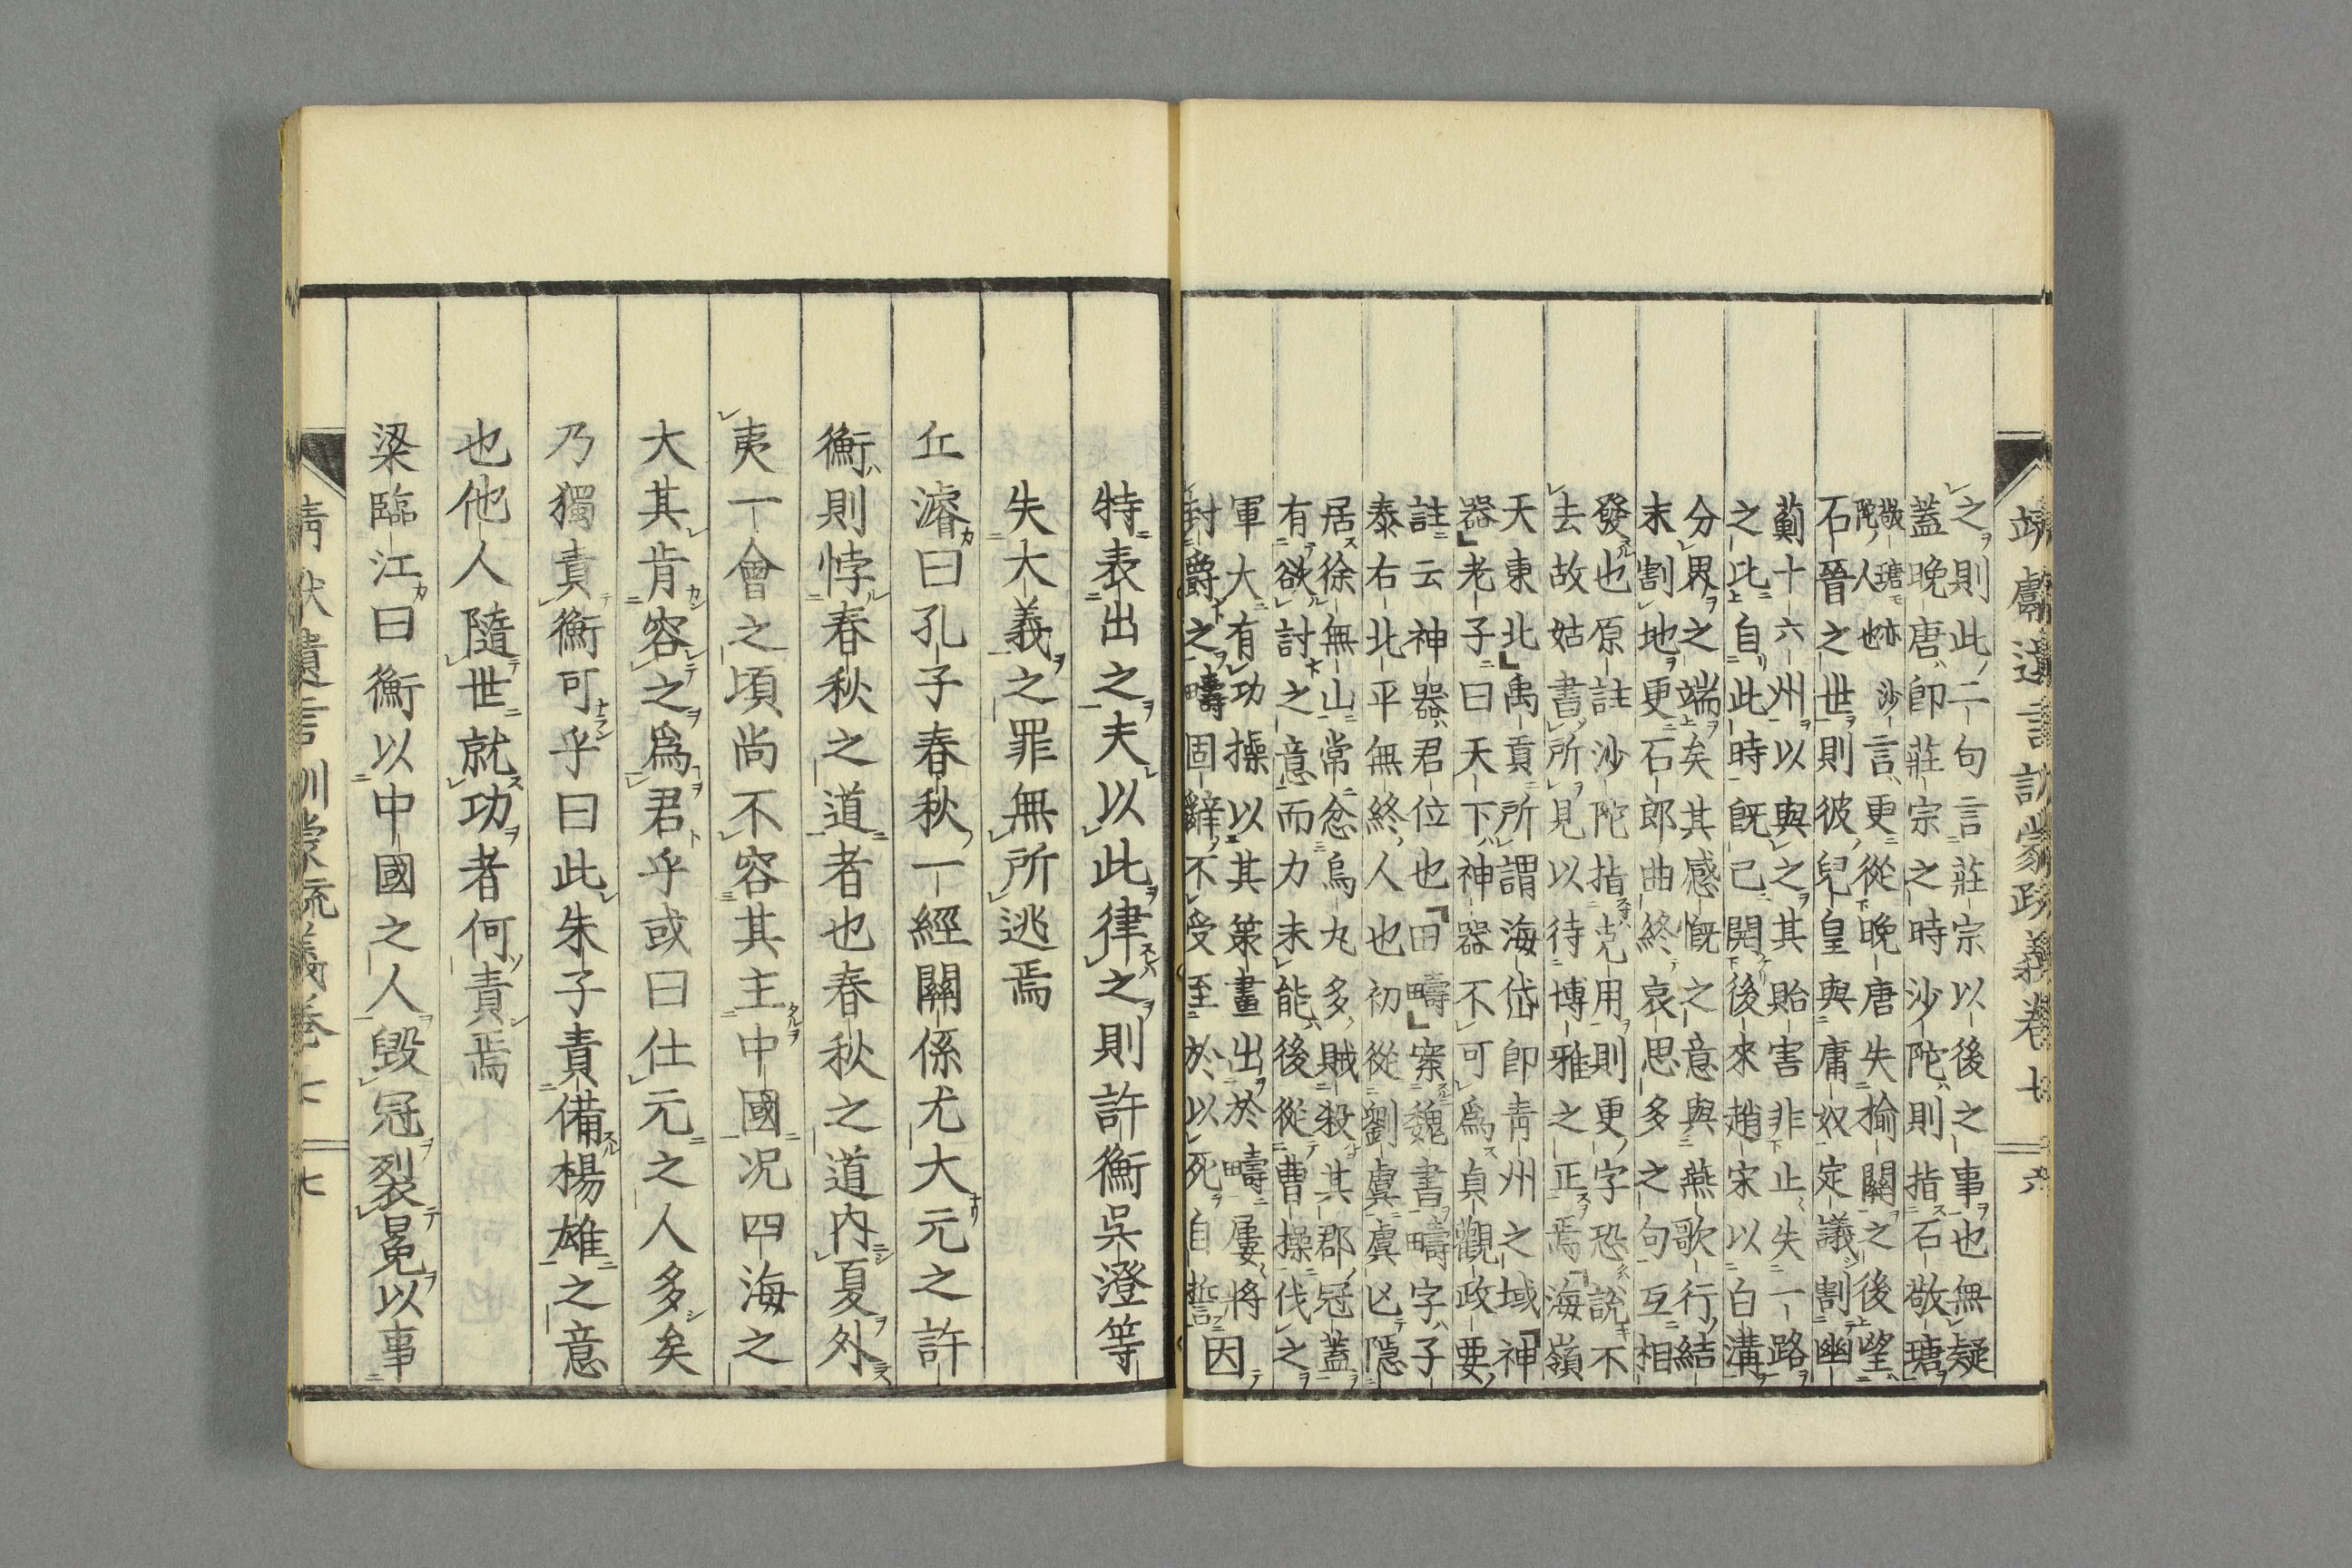 靖獻遺言訓蒙疏義卷七　六
之則此二句言莊宗以後之事也無疑
蓋晚唐卽莊宗之時沙陀則指石敬瑭
敬瑭亦沙
陀人也
言更從晚唐失揄關之後望
石晉之世則彼兒皇與庸奴定議割幽
薊十六州以與之其貽害非止失一路
之比自此時既已開後來趙宋以白溝
分界之端矣其感慨之意與燕歌行結
末割地更石郎曲終哀思多之句互相
發也原註沙陀指克用則更字恐說不
去故姑書所見以待博雅之正焉海嶺
天東北禹貢所謂海岱卽青州之域神
器老子曰天下神器不可爲貞觀政要
註云神器君位也田疇案魏書疇字子
泰右北平無終人也初從劉虞虞凶隱
居徐無山常忿烏丸多賊殺其郡冠蓋
有欲討之意而力未能後從曹操伐之
軍大有功操以其策畫出於疇屢將
封爵之疇固辭不受至於以死自誓因
特表出之夫以此律之則許衡吳澄等
失大義之罪無所逃焉
丘濬曰孔子春秋一經關係尤大元之許
衡則悖春秋之道者也春秋之道內夏外
夷一會之頃尚不容其主中國况四海之
大其肯容之爲君乎或曰仕元之人多矣
乃獨責衡可乎曰此朱子責備楊雄之意
也他人隨世就功者何責焉
梁臨江曰衡以中國之人毀冠裂冕以事
靖獻遺言訓蒙疏義卷七　七